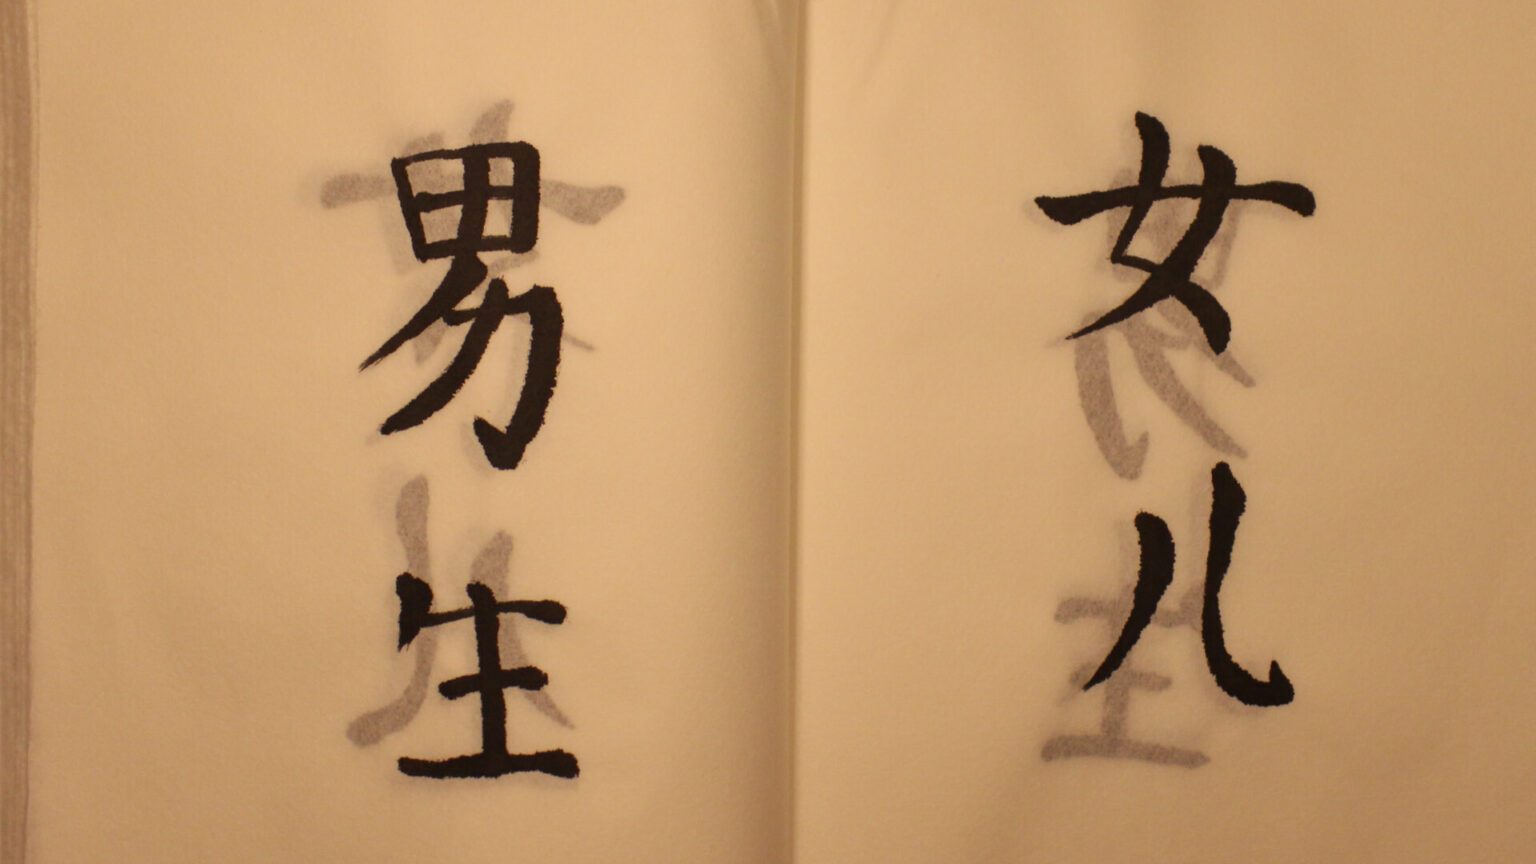 男生
女儿